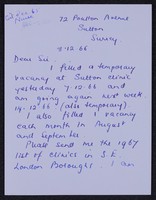 72 Avenue
Sutton
Surrey
8.12.66
Dear Sir,
I filled a temporary
vacancy at Sutton clinic
yesterday 7.12.66 and
am going again next week
14.12.66 (also temporary).
I also filled 1 vacancy
each month in August
and September
Please send me the 1967
list of clinics in S.E.
London Boroughs. I am